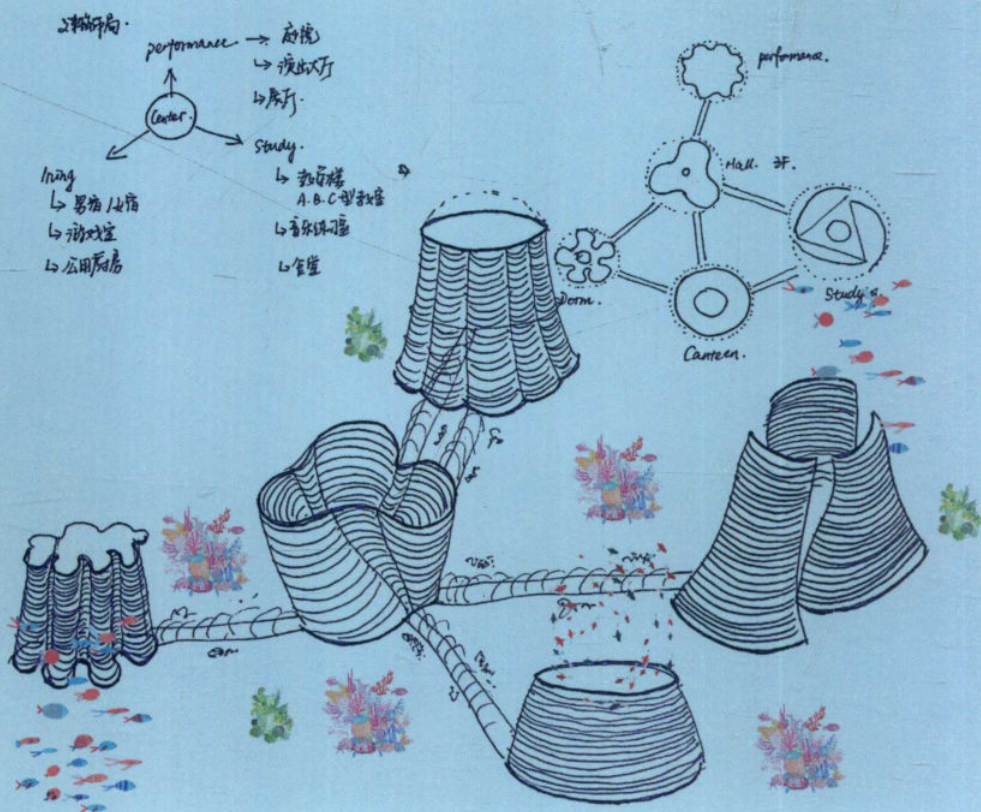 performance → 庭院
↳ 演出大厅
↳ 展厅.
Center.
Study.
↳ 教室楼
A.B.C型教室
↳ 音乐练习室
↳ 食堂
living
↳ 男宿/女宿
↳ 游戏室
↳ 公用厨房
performance.
Hall. 3F.
Dorm.
Study's
Canteen.